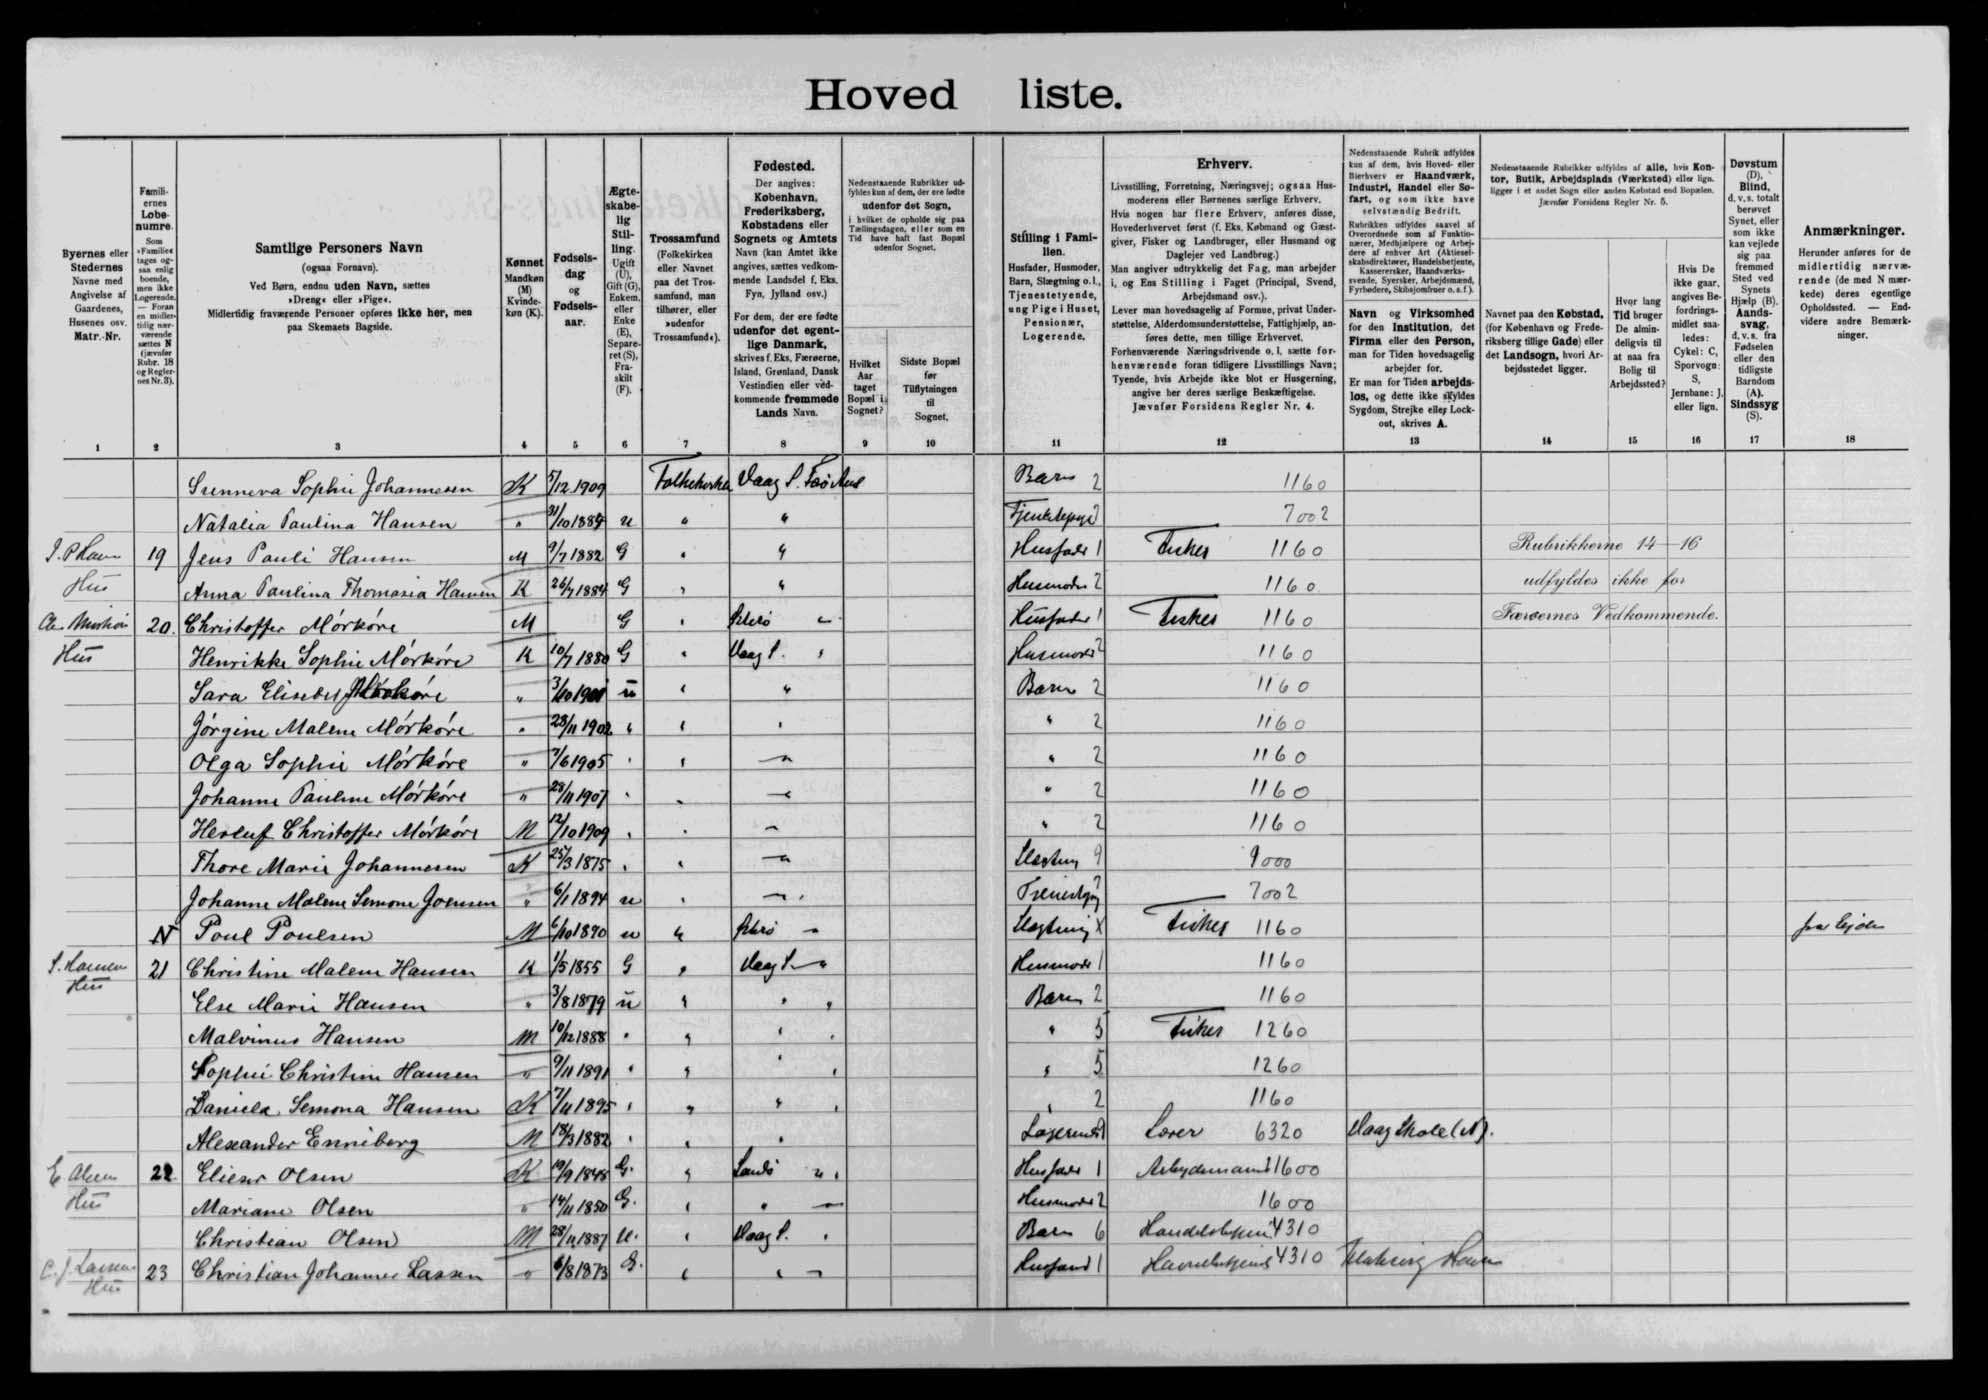 Hovedliste.
Byernes eller Stedernes Navne med Angivelse af Gaardenes, Husenes osv. Matr.-Nr.
Familiernes Løbenumre. Som »Familie« tages ogsaa enlig boende, men ikke Logerende. — Foran en midlertidig nærværende sættes N (jævnfør Rubr. 18 og Reglernes Nr. 3).
Samtlige Personers Navn (ogsaa Fornavn). Ved Børn, endnu uden Navn, sættes »Dreng« eller »Pige«. Midlertidig fraværende Personer opføres ikke her, men paa Skemaets Bagside.
Kønnet Mandkøn (M) Kvindekøn (K).
Fødselsdag og Fødselsaar.
Ægteskabelig Stilling. Ugift (U), Gift (G), Enkem. eller Enke (E), Separeret (S), Fraskilt (F).
Trossamfund (Folkekirken eller Navnet paa det Trossamfund, man tilhører, eller »udenfor Trossamfund«).
Fødested. Der angives: København, Frederiksberg, Købstadens eller Sognets og Amtets Navn (kan Amtet ikke angives, sættes vedkommende Landsdel f. Eks. Fyn, Jylland osv.) For dem, der ere fødte udenfor det egentlige Danmark, skrives f. Eks. Færøerne, Island, Grønland, Dansk Vestindien eller vedkommende fremmede Lands Navn.
Nedenstaaende Rubrikker udfyldes kun af dem, der ere fødte udenfor det Sogn, i hvilket de opholde sig paa Tællingsdagen, eller som en Tid have haft fast Bopæl udenfor Sognet.
Hvilket Aar taget Bopæl i Sognet?
Sidste Bopæl før Tilflytningen til Sognet.
Stilling i Familien. Husfader, Husmoder, Barn, Slægtning o.l., Tjenestetyende, ung Pige i Huset, Pensionær, Logerende.
Erhverv.
Livsstilling, Forretning, Næringsvej; ogsaa Husmoderens eller Børnenes særlige Erhverv.
Hvis nogen har flere Erhverv, anføres disse, Hovederhvervet først (f. Eks. Købmand og Gæstgiver, Fisker og Landbruger, eller Husmand og Daglejer ved Landbrug.)
Man angiver udtrykkelig det Fag, man arbejder i, og Ens Stilling i Faget (Principal, Svend, Arbejdsmand osv.).
Lever man hovedsagelig af Formue, privat Understøttelse, Alderdomsunderstøttelse, Fattighjælp, anføres dette, men tillige Erhvervet.
Forhenværende Næringsdrivende o. l. sætte forhenværende foran tidligere Livsstillings Navn;
Tyende, hvis Arbejde ikke blot er Husgerning, angive her deres særlige Beskæftigelse.
Jævnfør Forsidens Regler Nr. 4.
Nedenstaaende Rubrik udfyldes kun af dem, hvis Hoved- eller Bierhverv er Haandværk, Industri, Handel eller Søfart, og som ikke have selvstændig Bedrift.
Rubrikken udfyldes saavel af Overordnede som af Funktionærer, Medhjælpere og Arbejdere af enhver Art (Aktieselskabsdirektører, Handelsbetjente, Kasserersker, Haandværkssvende, Syersker, Arbejdsmænd, Fyrbødere, Skibsjomfruer o. s. f.).
Navn og Virksomhed for den Institution, det Firma eller den Person, man for Tiden hovedsagelig arbejder for.
Er man for Tiden arbejdsløs, og dette ikke skyldes Sygdom, Strejke eller Lockout, skrives A.
Nedenstaaende Rubrikker udfyldes af alle, hvis Kontor, Butik, Arbejdsplads (Værksted) eller lign. ligger i et andet Sogn eller anden Købstad end Bopælen. Jævnfør Forsidens Regler Nr. 5.
Navnet paa den Købstad, (for København og Frederiksberg tillige Gade) eller det Landsogn, hvori Arbejdsstedet ligger.
Hvor lang Tid bruger De almindeligvis til at naa fra Bolig til Arbejdssted?
Hvis De ikke gaar, angives Befordringsmidlet saaledes: Cykel: C, Sporvogn: S, Jernbane: J, eller lign.
Døvstum (D), Blind, d. v. s. totalt berøvet Synet, eller som ikke kan vejlede sig paa fremmed Sted ved Synets Hjælp (B). Aandssvag, d. v. s. fra Fødselen eller den tidligste Barndom (A). Sindssyg (S).
Anmærkninger. Herunder anføres for de midlertidig nærværende (de med N mærkede) deres egentlige Opholdssted. — Endvidere andre Bemærkninger.
1 2 3 4 5 6 7 8 9 10 11 12 13 14 15 16 17 18
Sunneva Sophie Johannesen K 5/12 1909 Folkekirken Vaag S. Barn 2 1160
Natalia Paulina Hansen " 31/10 1884 u " " 7002
19 Jens Pauli Hansen M 9/7 1882 G " " Husfader 1 Fisker 1160 Rubrikkerne 14—16
Hus Anna Paulina Thomasia Hansen K 26/7 1884 G " " Husmoder 2 1160 udfyldes ikke for
20. Christoffer Mórkóre M G " " Husfader 1 Fisker 1160 Færøernes Vedkommende.
Hus Henrikke Sophie Mórkóre K 10/7 1880 G " Vaag S. " Husmoder 2 1160
Sara Elisabet Mórkóre " 3/10 1901 u " " Barn 2 1160
Jórgine Malene Mórkóre " 28/11 1902 " " " " 2 1160
Olga Sophie Mórkóre " 7/6 1905 " " " " 2 1160
Johanne Pauline Mórkóre " 28/11 1907 " " " " 2 1160
Herluf Christoffer Mórkóre M 12/10 1909 " " " " 2 1160
Thore Marie Johannesen K 25/3 1875 " " " Slægtning 9 9000
Johanne Malene Semone Joensen " 6/1 1894 u " " 7002
N Poul Poulsen M 6/10 1890 u " Slægtning X Fisker 1160
S. Hansen Hus 21 Christine Malene Hansen K 1/5 1855 G " Vaag S. " Husmoder 1 1160
Else Marie Hansen " 3/8 1879 u " " " Barn 2 1160
Malvinus Hansen M 10/12 1888 " " " " " 5 Fisker 1260
Sophie Christine Hansen " 9/11 1891 " " " " " 5 1260
Daniela Semona Hansen K 7/11 1895 " " " " " 2 1160
Alexander Enniberg M 18/3 1882 " " " Lærer 6320 Vaag Skole (N).
E. Olsen 22. Elieser Olsen K 19/9 1848 G. " Sandø " " Husfader 1 Arbejdsmand 1600
Hus Mariane Olsen " 14/11 1850 G. " " " Husmoder 2 1600
Christian Olsen M 28/11 1887 u. " Vaag S. " Barn 6 4310
C. J. Lassens Hus 23 Christian Johannes Lassen " 6/8 1873 G. " " " Husfader 1 4310